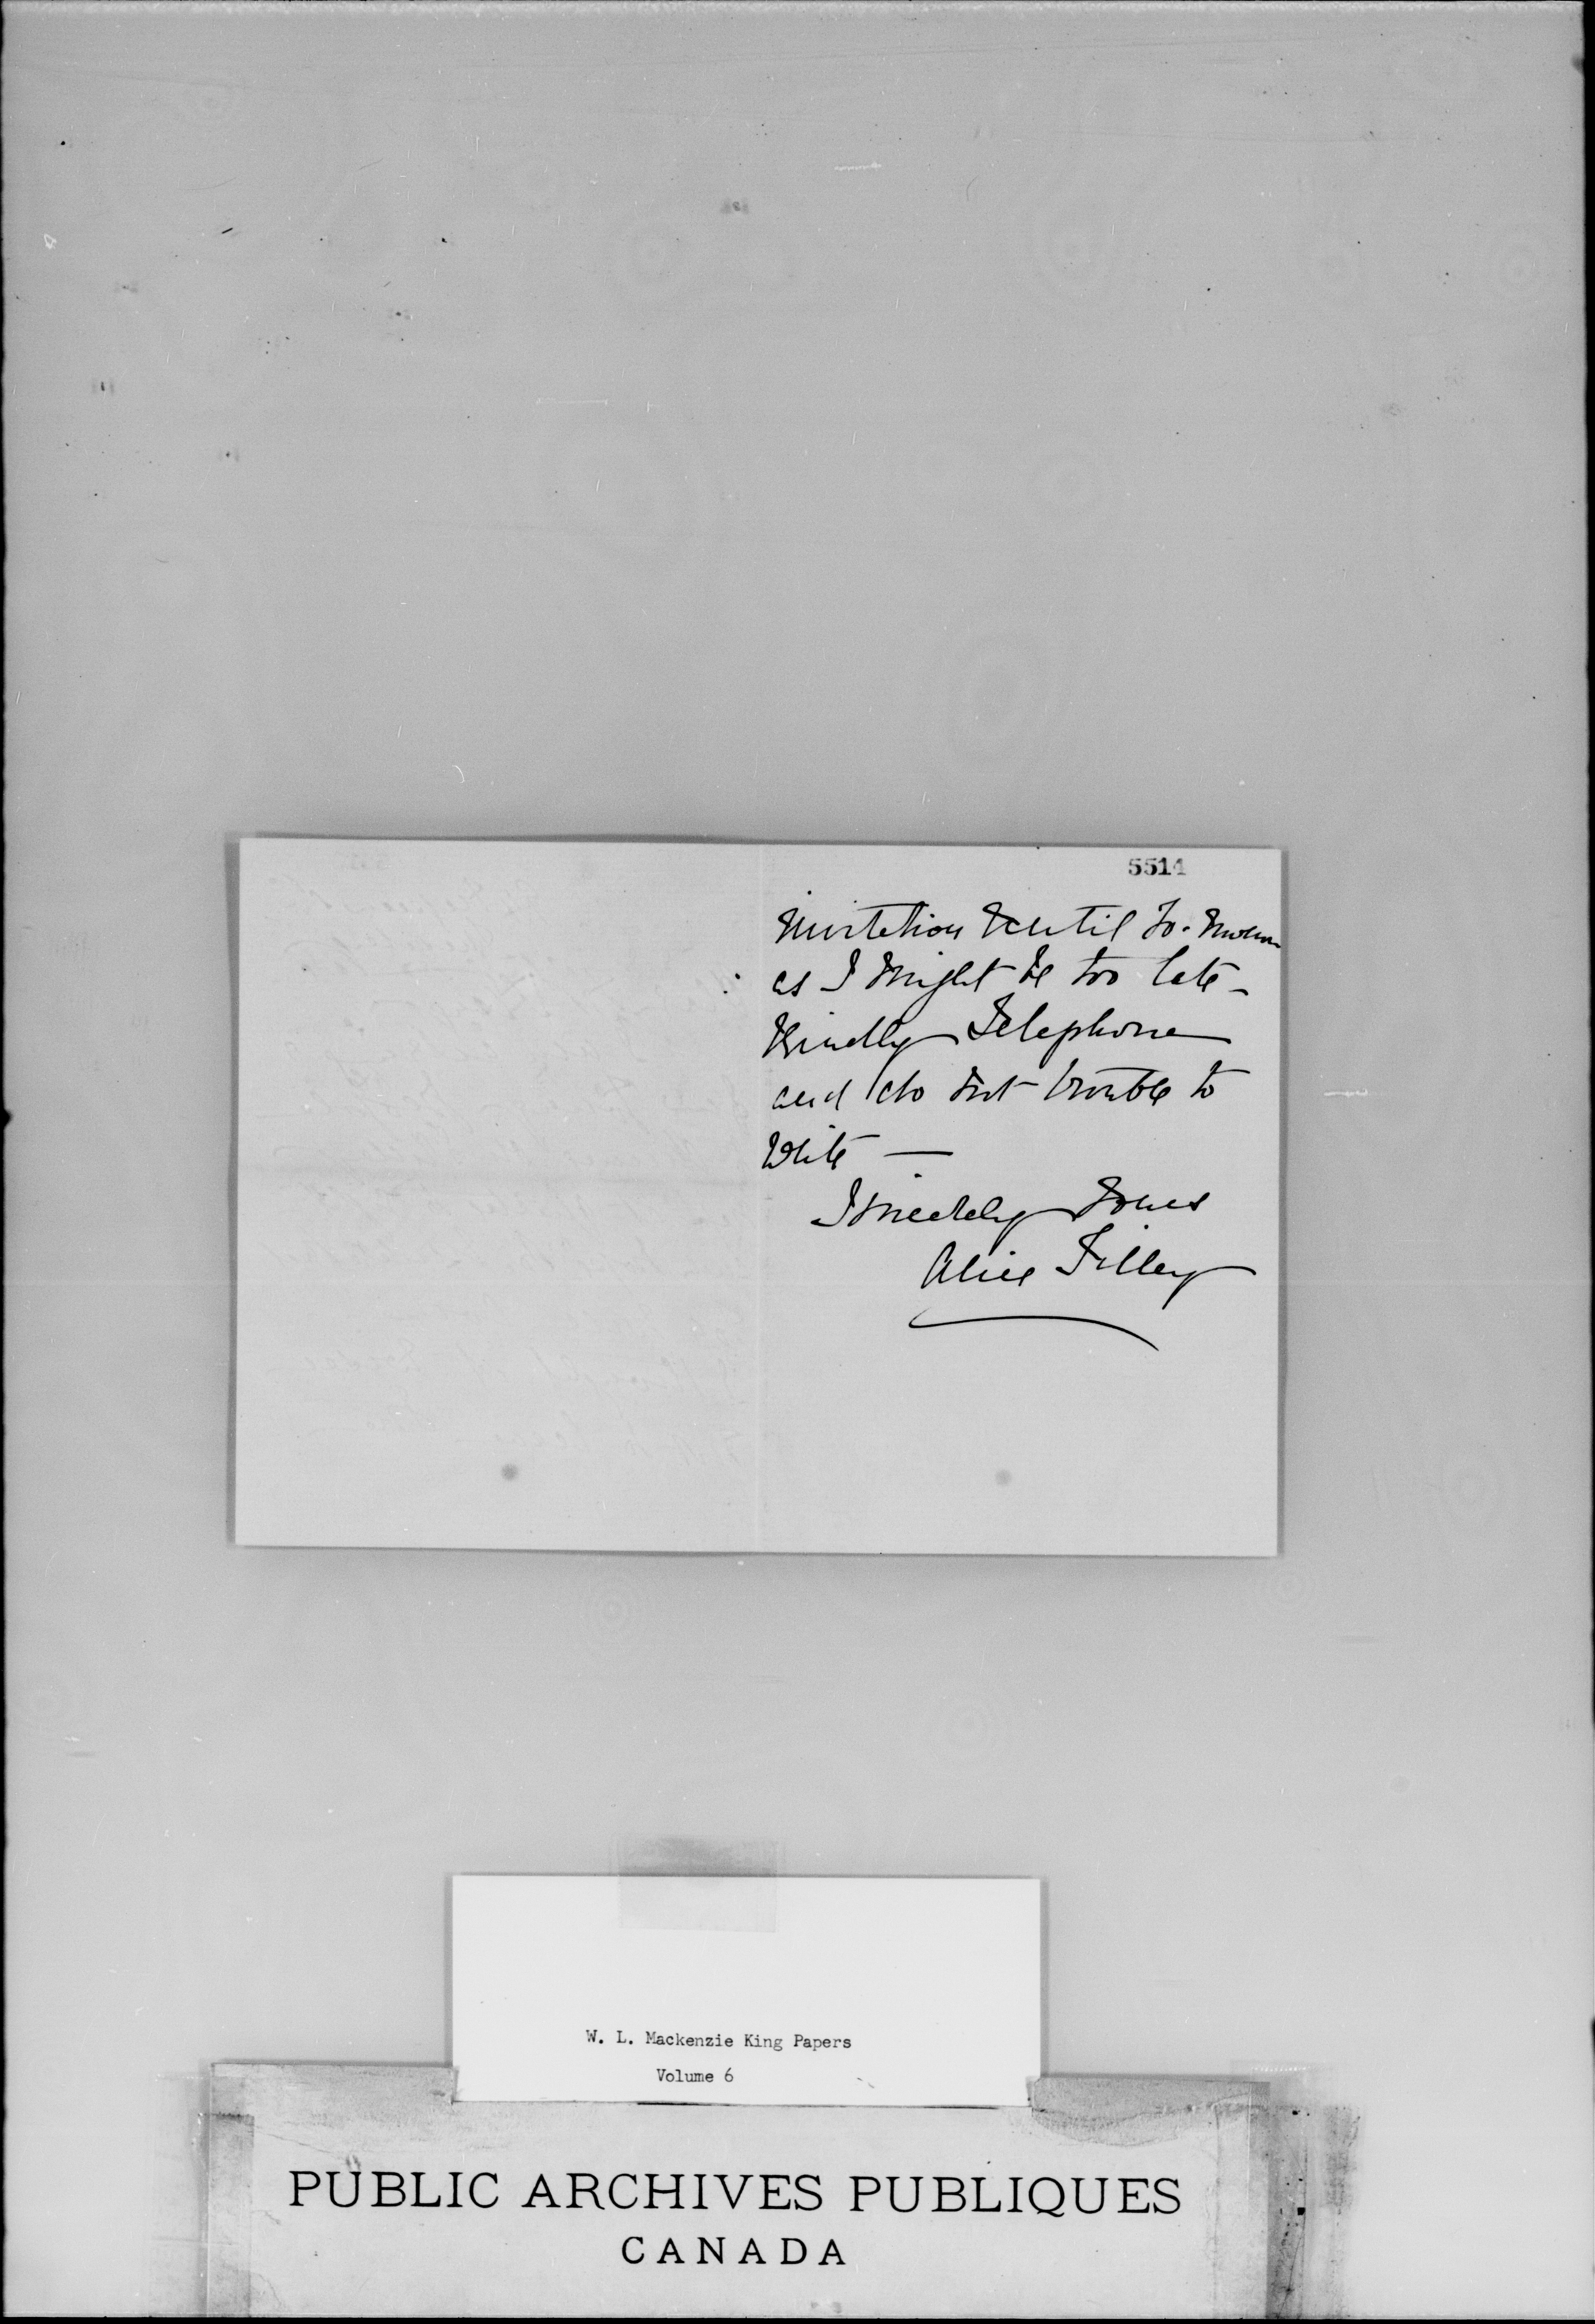 5514
invitation until to-morrow
as I might be too late -
Kindly Telephone
and do not trouble to
write —
Sincerely Yours
Alice Tilley
W. L. Mackenzie King Papers
Volume 6
PUBLIC ARCHIVES PUBLIQUES
CANADA